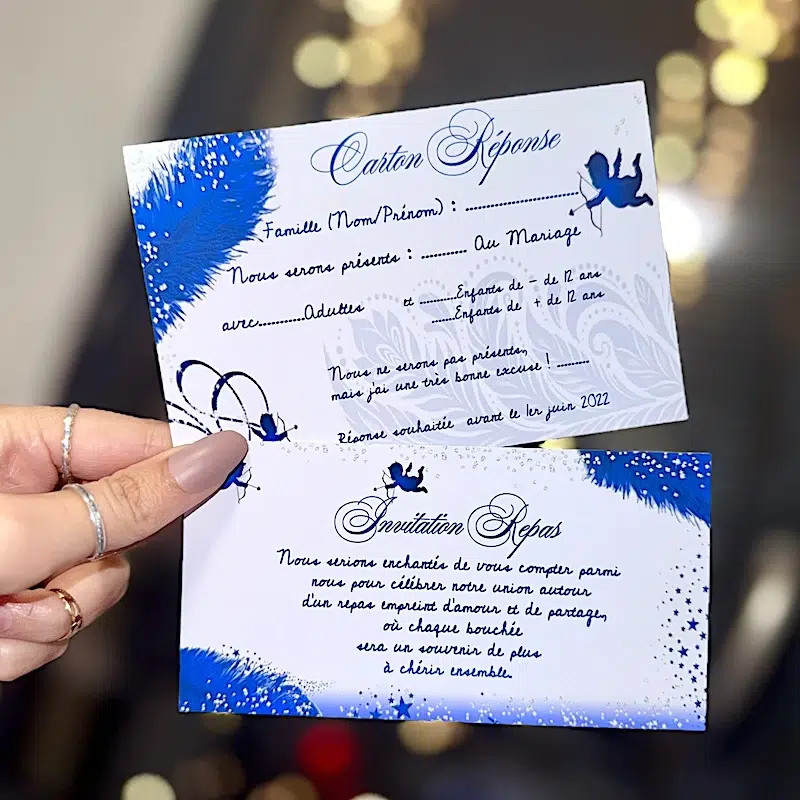 Carton Réponse
Famille (Nom/Prénom) : ..............................
Nous serons présents : ........... Au Mariage
avec...........Adultes et ...........Enfants de - de 12 ans
.......Enfants de + de 12 ans
Nous ne serons pas présents,
mais j'ai une très bonne excuse ! .........
Réponse souhaitée avant le 1er juin 2022
Invitation Repas
Nous serions enchantés de vous compter parmi
nous pour célébrer notre union autour
d'un repas empreint d'amour et de partage,
où chaque bouchée
sera un souvenir de plus
à chérir ensemble.